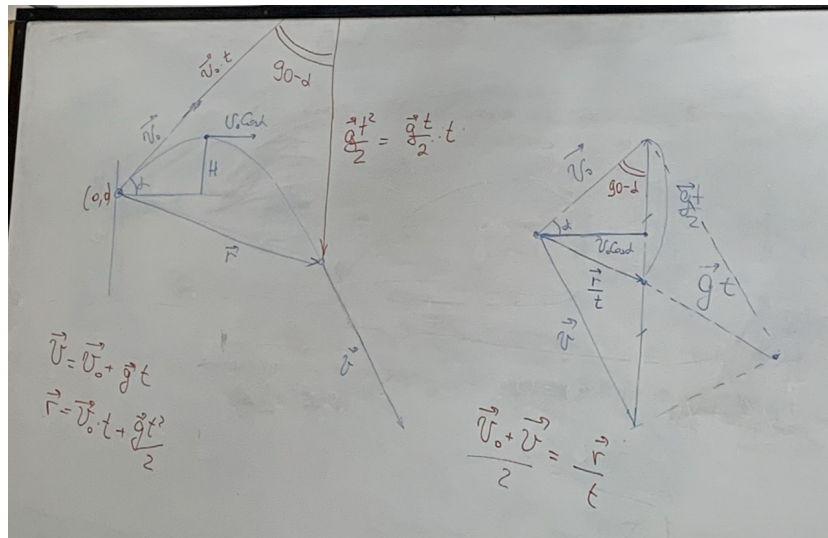 v⃗₀·t
90-α
v⃗₀
v₀cosα
g⃗t²/2 = g⃗t/2 · t
H
(0,0)
α
r⃗
v⃗
v⃗ = v⃗₀ + g⃗t
r⃗ = v⃗₀·t + g⃗t²/2
v⃗₀
90-α
g⃗t/2
α
v₀cosα
r⃗/t
g⃗t
v⃗
(v⃗₀ + v⃗)/2 = r⃗/t